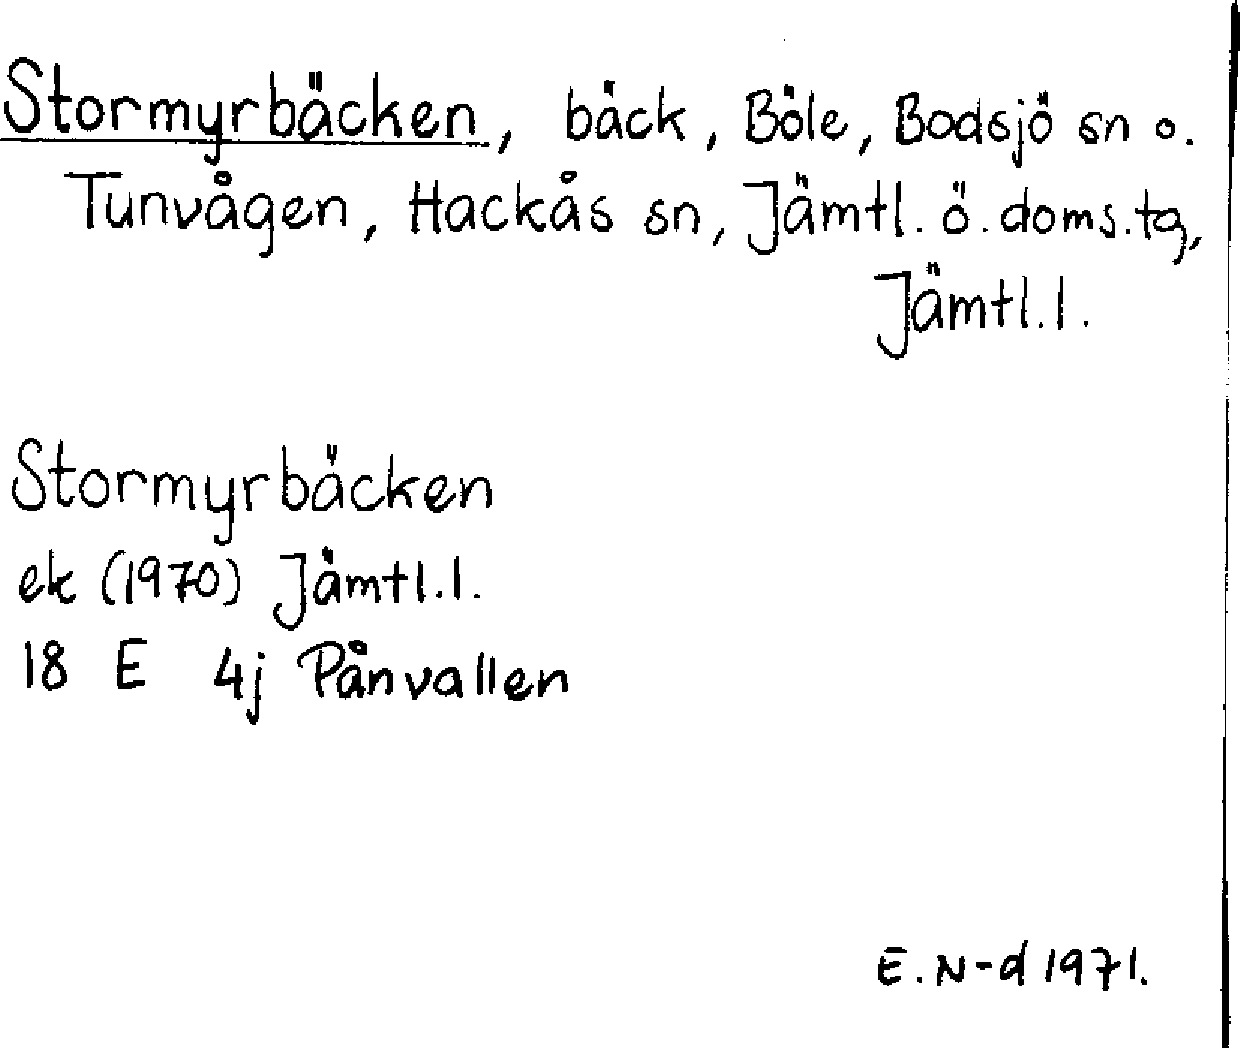 Stormyrbäcken, bäck, Böle, Bodsjö sn o.
Tunvågen, Hackås sn, Jämtl. ö. doms.tg,
Jämtl.l.
Stormyrbäcken
ek (1970) Jämtl.l.
18 E 4j Pånvallen
E. N-d 1971.